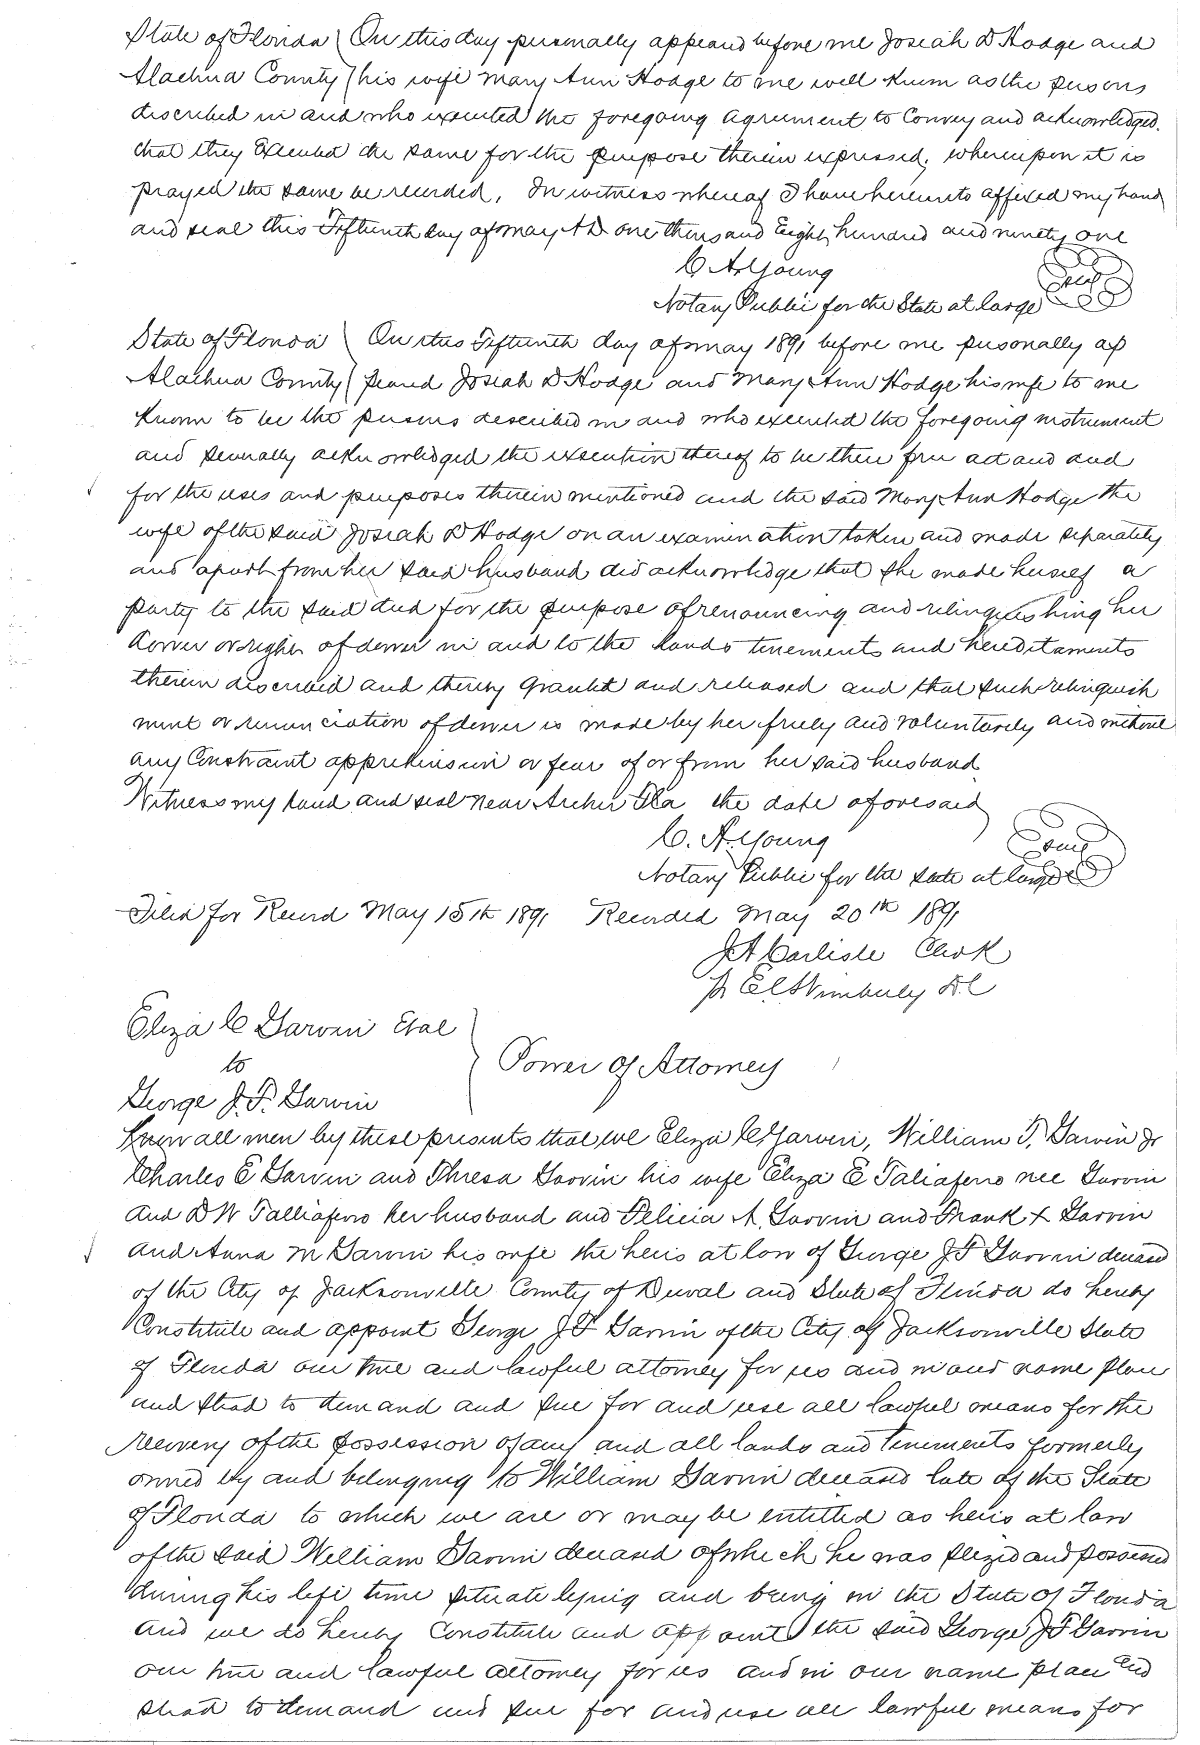 State of Florida ( On this day personally appeared before me Josiah D Hodge and
Alachua County ( his wife Mary Ann Hodge to me well known as the persons
discribed in and who executed the foregoing agreement to Convey and acknowledged.
that they Executed the same for the purpose therein expressed; whereupon it is
prayed the same be recorded, In witness whereof I have hereunto affixed my hand
and seal this Fifteenth day of May A D one thousand Eight hundred and ninety one
C. A. Young
Notary Public for the State at large Seal
State of Florida ( On this Fifteenth day of May 1891 before me personally ap
Alachua County ( peared Josiah D Hodge and Mary Ann Hodge his wife to me
known to be the persons described in and who executed the foregoing instrument
and severally acknowledged the execution thereof to be their free act and and
for the uses and purposes therein mentioned and the said Mary Ann Hodge the
wife of the said Josiah D Hodge on an examination taken and made separately
and apart from her said husband did acknowledge that she made herself a
party to the said deed for the purpose of renouncing and relinquishing her
dower or right of dower in and to the lands tenements and hereditaments
therein discribed and thereby granted and released and that such relinquish
ment or renunciation of dower is made by her freely and voluntarily and without
any Constraint apprehension or fear of or from her said husband.
Witness my hand and seal near Archer Fla the date aforesaid
C. A. Young Seal
Notary Public for the State at large
Filed for Record May 15th 1891 Recorded May 20th 1891
J A Carlisle Clerk
pr E C Wimberly D.C
Eliza C Garvin Etal
to
Power of Attorney
George J. F. Garvin
Know all men by these presents that we Eliza C Garvin, William F. Garvin Jr
Charles E Garvin and Thresa Garvin his wife Eliza E Taliaferro nee Garvin
and D W Talliaferro her husband and Felicia A. Garvin and Frank X Garvin
and Anna M Garvin his wife the heirs at law of George J F Garvin deceased
of the City of Jacksonville County of Duval and State of Florida do hereby
Constitute and appoint George J F Garvin of the City of Jacksonville State
of Florida our true and lawful attorney for us and in our name place
and stead to demand and sue for and use all lawful means for the
recovery of the possession of any and all lands and tenements formerly
owned by and belonging to William Garvin deceased late of the State
of Florida to which we are or may be entitled as heirs at law
of the said William Garvin deceased of which he was seized and possessed
during his life time situate lying and being in the State of Florida
and we do hereby Constitute and appoint the said George J F Garvin
our true and lawful attorney for us and in our name place and
stead to demand and sue for and use all lawful means for